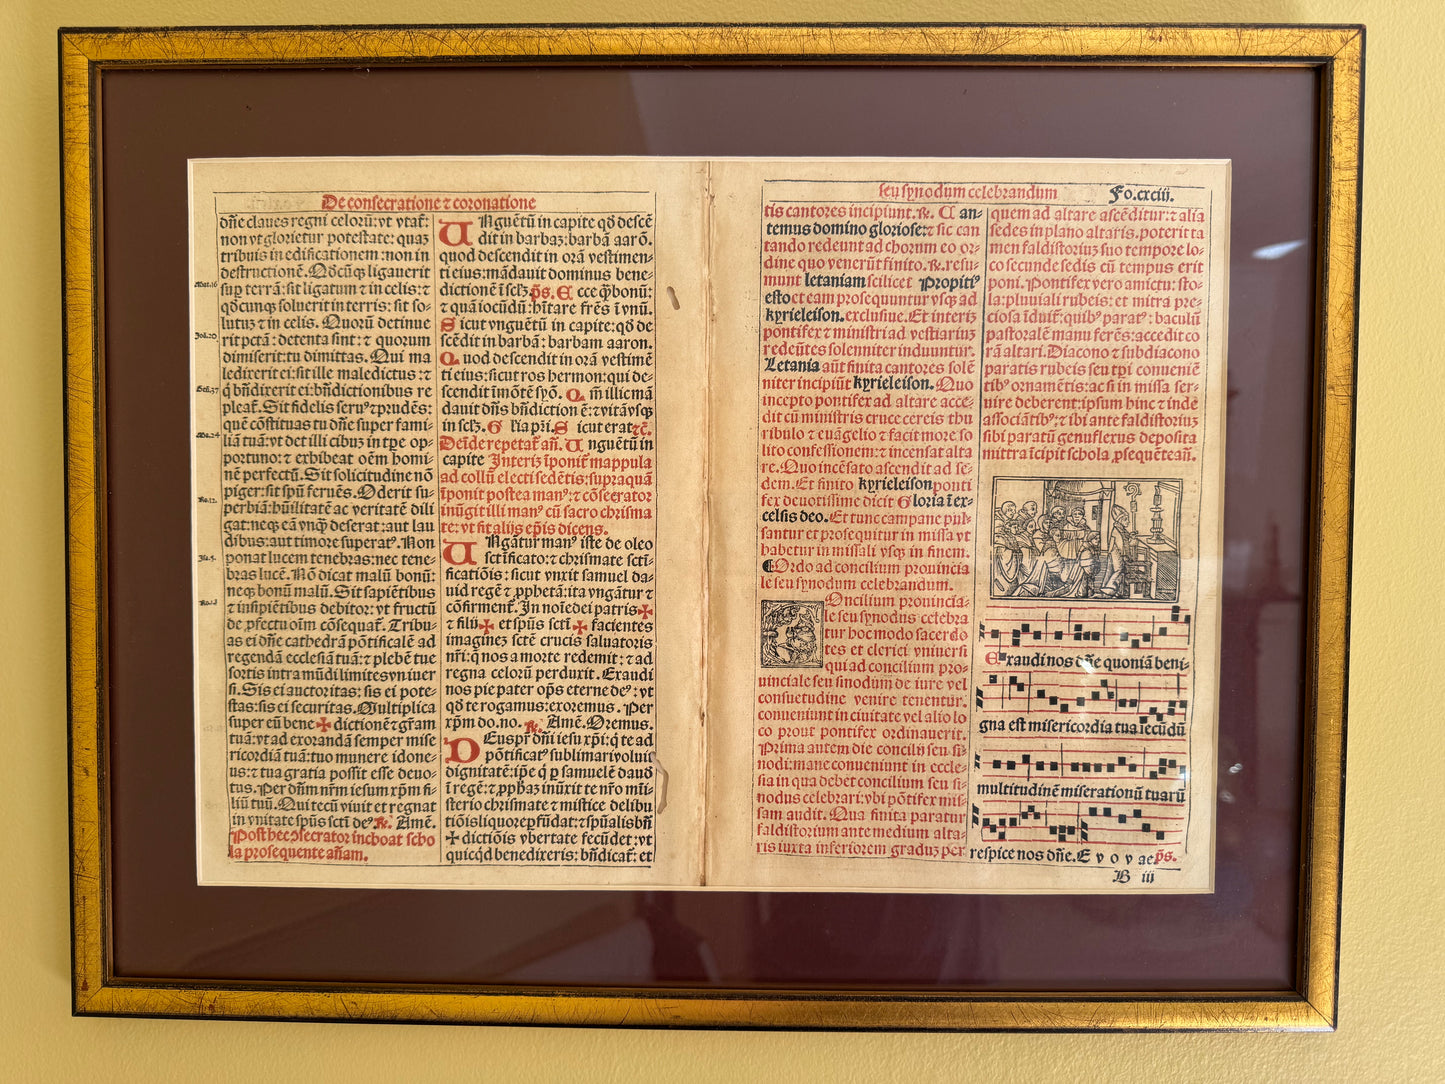 De consecratione ⁊ coronatione
dñe claues regni celorū: vt vtat᷑:
non vt glorietur potestate: quaꝫ
tribuis in edificationem: non in
destructionē. Qđcūqꝫ ligauerit
Mat.16
sup terrā: sit ligatum ⁊ in celis: ⁊
qđcunqꝫ soluerit in terris: sit so-
lutuꝫ ⁊ in celis. Quorū detinue
rit pctā: detenta sint: ⁊ quorum
dimiserit: tu dimittas. Qui ma
ledixerit ei: sit ille maledictus: ⁊
q̇ bñdixerit ei: bñdictionibus re
pleat᷑. Sit fidelis seruꝰ ⁊ prudēs:
quē cōstituas tu dñe super fami-
liā tuā: vt det illi cibuꝫ in tpe op-
portuno: ⁊ exhibeat oēm homi-
nē perfectū. Sit solicitudine nō
piger: sit spū feruēs. Oderit su-
perbiā: hūilitatē ac veritatē dili
gat: neqꝫ eā vnqꝫ deserat: aut lau
dibus: aut timore superatꝰ. Non
ponat lucem tenebras: nec tene-
bras lucē. Nō dicat malū bonū:
neqꝫ bonū malū. Sit sapiētibus
⁊ insipiētibus debitor: vt fructū
de ꝓfectu oīm cōsequat᷑. Tribu-
as ei dñe cathedrā pōtificalē ad
regendā ecclesiā tuā: ⁊ plebē tue
sortis intra mūdi limites vniuer
si. Sis ei auctoritas: sis ei pote-
stas: sis ei securitas. Multiplica
super eū bene ✠ dictionē ⁊ gr̄am
tuā: vt ad exorandā semper mise
ricordiā tuā: tuo munere idone-
us: ⁊ tua gratia possit esse deuo-
tus. Per dñm nrm iesum xpm fi
liū tuū. Qui tecū viuit et regnat
in vnitate spūs scti deꝰ. ℟. Amē.
Post hec ↄsecrator inchoat scho
la prosequente añam.
UNguētū in capite qđ descē
dit in barbaꝫ: barbā aarō.
quod descendit in orā vestimen-
ti eius: mādauit dominus bene-
dictionē ī sclꝫ. p̄s. Ecce q̄ bonū:
⁊ quā iocūdū: h̄itare frēs ī vnū.
Sicut vnguētū in capite: qđ de
scēdit in barbā: barbam aaron.
Quod descendit in orā vestimē
ti eius: sicut ros hermon: qui de-
scendit ī mōtē syō. Qm̄ illic mā
dauit dñs bñdiction ē: ⁊ vitā vsqꝫ
in sclꝫ. Gloria pr̄i. Sicut erat ⁊c̄.
Deīde repetat᷑ añ. Unguētū in
capite Interiꝫ īponit᷑ mappula
ad collū electi sedētis: supra quā
īponit postea manꝰ: ⁊ cōsecrator
inūgit illi manꝰ cū sacro chrisma
te: vt fit alijs ep̄is dicens.
UNgātur manꝰ iste de oleo
sctīficato: ⁊ chrismate sctī-
ficatiōis: sicut vnxit samuel da-
uid regē ⁊ ꝓphetā: ita vngātur ⁊
cōfirment᷑. In noīe dei patris ✠
⁊ filii ✠ et spūs sctī ✠ facientes
imagineꝫ sctē crucis saluatoris
nr̄i: q̇ nos a morte redemit: ⁊ ad
regna celorū perduxit. Exaudi
nos pie pater op̄s eterne deꝰ: vt
qđ te rogamus: exoremus. Per
xp̄m do. no. ℟. Amē. Oremus.
DEus pr̄ dñi iesu xp̄i: q̇ te ad
pōtificatꝰ sublimari voluit
dignitatē: ip̄e q̇ ꝑ samuelē dauđ
ī regē: ⁊ ꝓphaꝫ inūxit te nr̄o mī-
sterio chrismate ⁊ mistice delibu
tiōis liquore ꝑfūdat: ⁊ spūalis bñ
✠ dictiōis vbertate fecūdet: vt
quicq̇d benedixeris: bñdicat᷑: et
seu synodum celebrandum
Fo.cxciij.
tis cantores incipiunt. ℟. Can-
temus domino gloriose: ⁊ sic can
tando redeunt ad chorum eo or-
dine quo venerūt finito. ℟. resu-
munt letaniam scilicet Propitiꝰ
esto et eam prosequuntur vsqꝫ ad
kyrieleison. exclusiue. Et interiꝫ
pontifex ⁊ ministri ad vestiariuꝫ
redeūtes solenniter induuntur.
Letania aūt finita cantores solē
niter incipiūt kyrieleison. Quo
incepto pontifex ad altare acce-
dit cū ministris cruce cereis thu
ribulo ⁊ euāgelio ⁊ facit more so
lito confessionem: ⁊ incensat alta
re. Quo incēsato ascendit ad se-
dem. Et finito kyrieleison ponti
fex deuotissime dicit Gloria ī ex-
celsis deo. Et tunc campane pul-
santur et prosequitur in missa vt
habetur in missali vsqꝫ in finem.
¶ Ordo ad concilium prouincia
le seu synodum celebrandum.
COncilium prouincia-
le seu synodus celebra
tur hoc modo sacerdo
tes et clerici vniuersi
qui ad concilium pro-
uinciale seu sinodum de iure vel
consuetudine venire tenentur.
conueniunt in ciuitate vel alio lo
co prout pontifex ordinauerit.
Prima autem die concilij seu si-
nodi: mane conueniunt in eccle-
sia in qua debet concilium seu si-
nodus celebrari: vbi pōtifex mis-
sam audit. Qua finita paratur
faldistorium ante medium alta-
ris iuxta inferiorem graduꝫ per
quem ad altare ascēditur: ⁊ alia
sedes in plano altaris. poterit ta
men faldistoriuꝫ suo tempore lo-
co secunde sedis cū tempus erit
poni. Pontifex vero amictu: sto-
la: pluuiali rubeis: et mitra pre-
ciosa īduit᷑: quibꝰ paratꝰ: baculū
pastoralē manu ferēs: accedit co
rā altari. Diacono ⁊ subdiacono
paratis rubeis seu tpi conueniē
tibꝰ ornamētis: ac si in missa ser-
uire deberent: ipsum hinc ⁊ inde
associātibꝰ: ⁊ ibi ante faldistoriuꝫ
sibi paratū genuflexus deposita
mitra īcipit schola ꝓsequēte añ.
Exaudi nos dñe quoniā beni-
gna est misericordia tua iecūdū
multitudinē miserationū tuarū
respice nos dñe. E v o v ae p̄s.
B iij